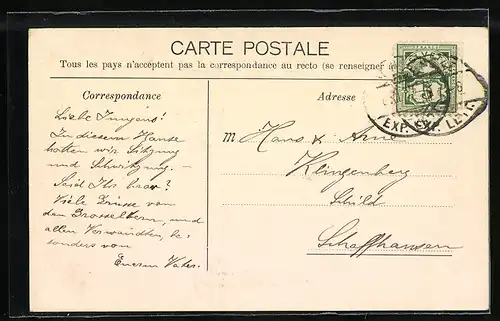 CARTE POSTALE
Tous les pays n'acceptent pas la correspondance au recto (se renseigner à
Correspondance
Adresse
Liebe Jungens!
In diesem Hause
hatten wir Sitzung
und Schwitzung. –
Seid Ihr brav?
Viele Grüsse von
den Grosseltern, und
allen Verwandten, be-
sonders von
Eurem Vater.
M Hans &
Klingenberg
Schild
Schaffhausen
FRANCO
EXP. LET.
EXP. LET.